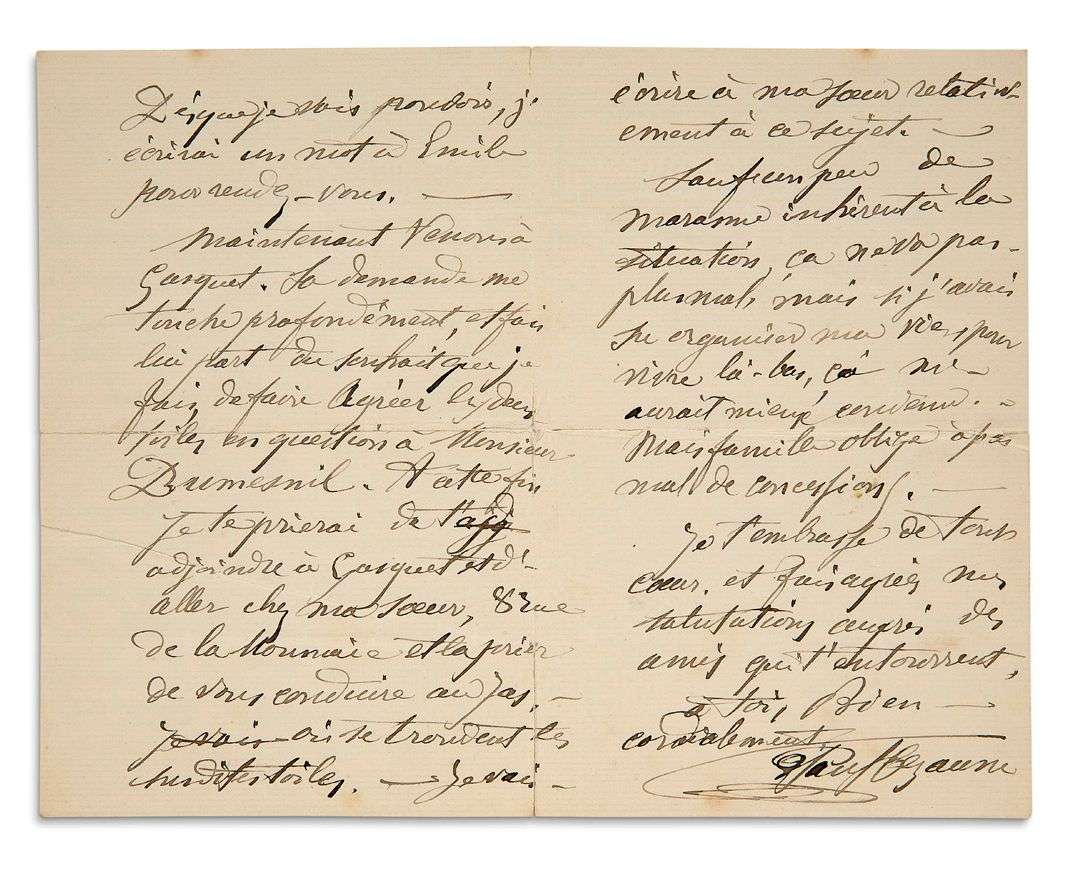 Dès que je vais pouvoir, j'
écrirai un mot à Emile
pour rendez-vous. —
Maintenant venons à
Gasquet. Sa demande me
touche profondément, et fais
lui part du souhait que je
fais, de faire Agréer les deux
toiles en question à Monsieur
Dumesnil. A cette fin
je te prierai de t'adj
adjoindre à Gasquet et d'-
aller chez ma sœur, 8 rue
de la Monnaie et la prier
de vous conduire au Jas, -
je vais où se trouvent les
susdites toiles. — Je vais -
écrire à ma sœur relativ-
ement à ce sujet. —
Sauf un peu de
marasme inhérent à la
situation, ça ne va pas -
plus mal, mais si j'avais
su organiser ma vie, pour
vivre là-bas, ça m'-
aurait mieux convenu. -
Mais famille oblige à pas
mal de concessions. —
Je t'embrasse de tout
cœur, et fais agréer mes
salutations auprès des
amis qui t'entourent,
à toi, Bien —
cordialement
Paul Cezanne